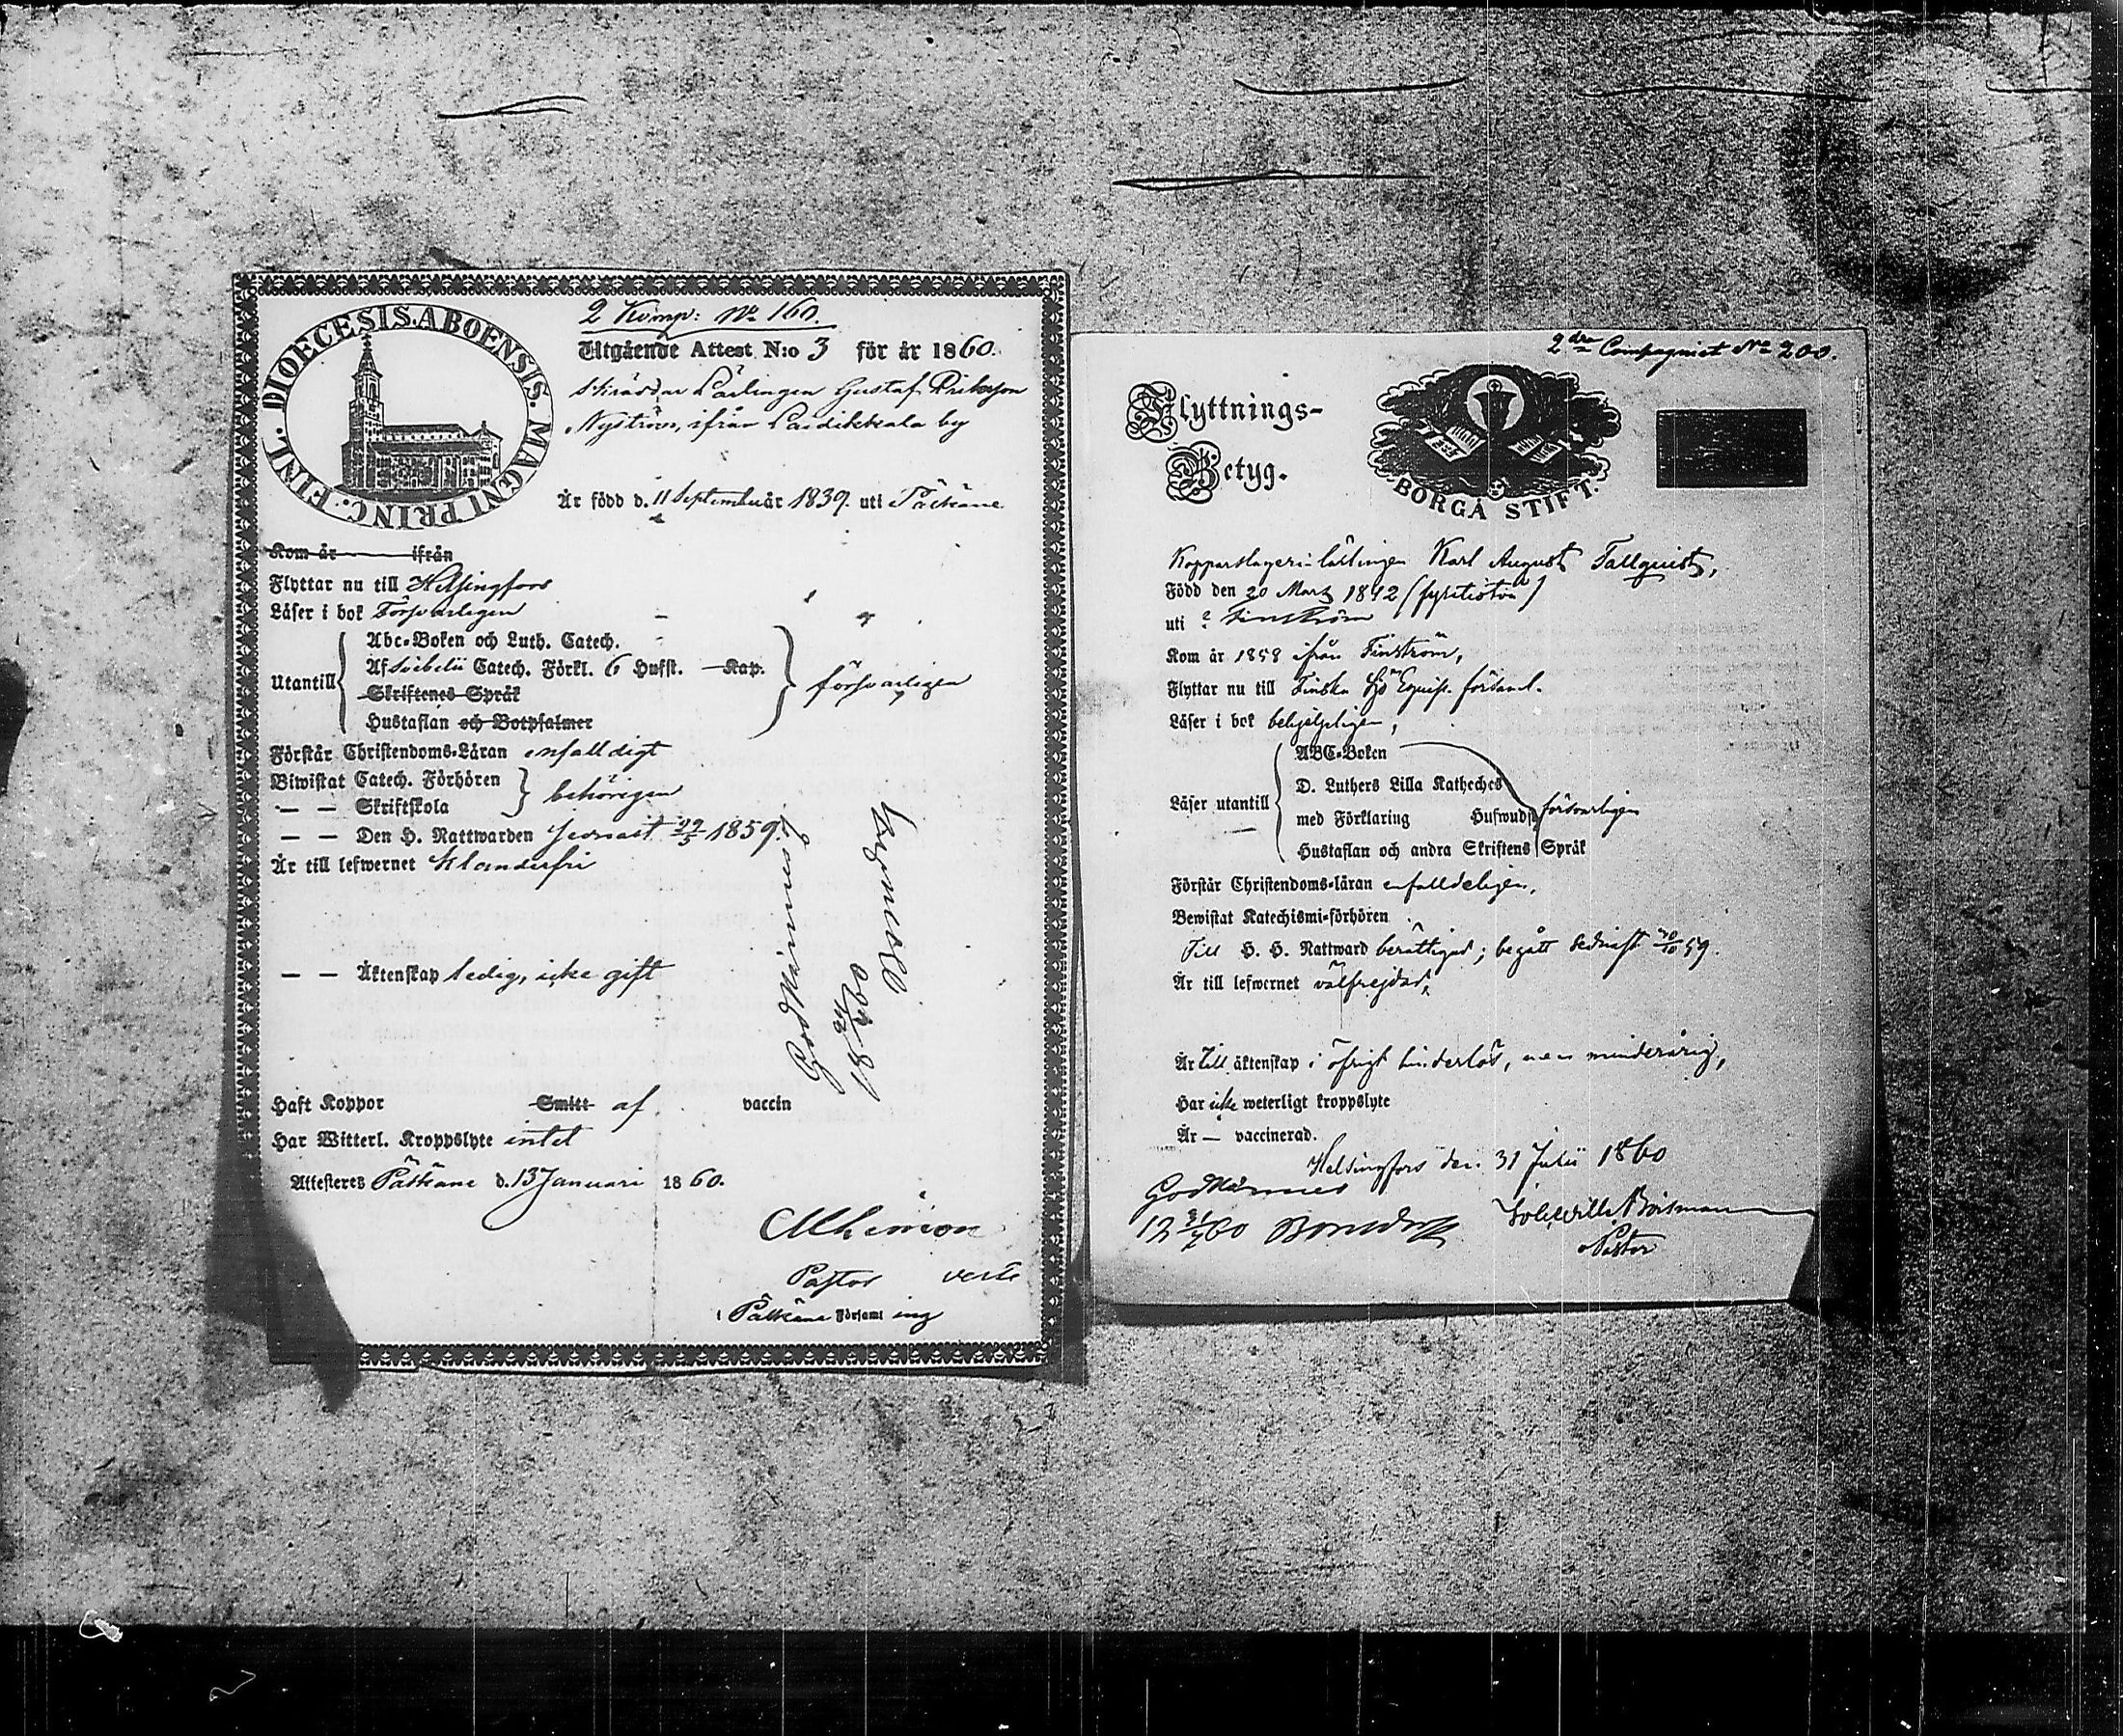 2 Komp: No 160.
DIOECESIS. ABOENSIS. MAGNI PRINC. FINL.
Utgående Attest N:o 3 för år 1860.
Skräddar Lärlingen Gustaf Eriksson
Nyström, ifrån Laidikkala by
Är född d. 11 September år 1839. uti Pälkäne
Kom år ifrån
Flyttar nu till Helsingfors
Läser i bok Försvarligen
Utantill
Abc-Boken och Luth. Catech.
Af Svebelii Catech. Förkl. 6 Hufst. Kap.
Skriftenes Språk
Hustaflan och Botpsalmer
försvarligen
Förstår Christendoms-Läran enfalldigt
Biwistat Catech. Förhören
— — Skriftskola
behörigen
— — Den H. Nattwarden 1859.
Är till lefwernet klanderfri
— — Äktenskap ledig, icke gift
Haft Koppor Smitt af vaccin
Har Witterl. Kroppslyte intet
Attesteras Pälkäne d. 13 Januari 1860.
Pastor
i Pälkäne Församling
Godkännes
Bonsdorff
2dra Compagniet No 200.
Flyttnings-
Betyg.
BORGÅ STIFT.
Kopparslageri-lärlingen Karl August Tallqvist,
Född den 20 Mars 1842 (fyratiotvå)
uti ? Finström
Kom år 1858 ifrån Finström,
Flyttar nu till Finska Sjö Equip. församl.
Läser i bok behjelpligen,
Läser utantill
ABC-Boken
D. Luthers Lilla Kateches
med Förklaring Hufwudst
Hustaflan och andra Skriftens Språk
försvarligen
Förstår Christendoms-läran enfalldeligen,
Bewistat Katechismi-förhören
Till H. H. Nattward berättigad; begått sednast 30/10 59.
Är till lefwernet välfrejdad,
Är till äktenskap i öfrigt hinderlös, men minderårig,
Har icke weterligt kroppslyte
Är — vaccinerad.
Helsingfors den 31 Julii 1860
Godkännes
Bonsdorff
Pastor